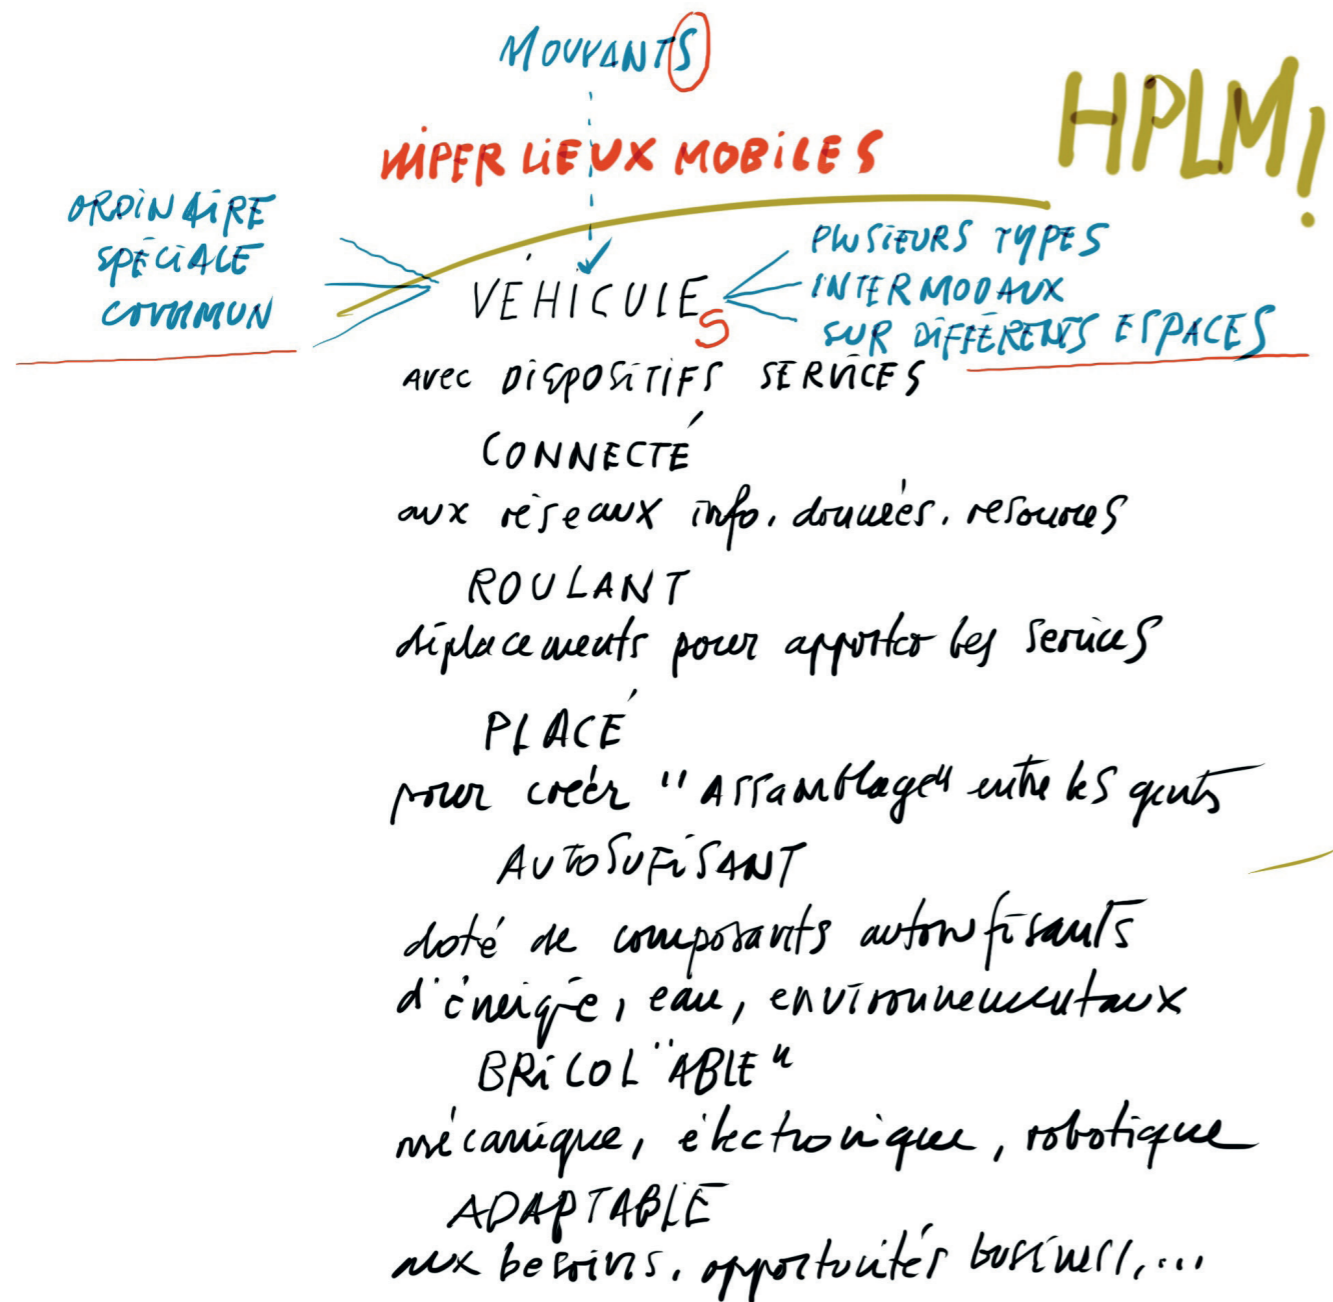 MOUVANTS
HPLM!
HIPER LIEUX MOBILES
ORDINAIRE
SPÉCIALE
COMMUN
VÉHICULES
PLUSIEURS TYPES
INTERMODAUX
SUR DIFFÉRENTS ESPACES
avec DISPOSITIFS SERVICES
CONNECTÉ
aux réseaux info. données. resources
ROULANT
déplacements pour apporter les services
PLACÉ
pour créer "Assamblage" entre les gents
AUTOSUFISANT
doté de composants autosufisants
d'énergie, eau, environnementaux
BRICOL"ABLE"
mécanique, électronique, robotique
ADAPTABLE
aux besoins. opportunités business,...